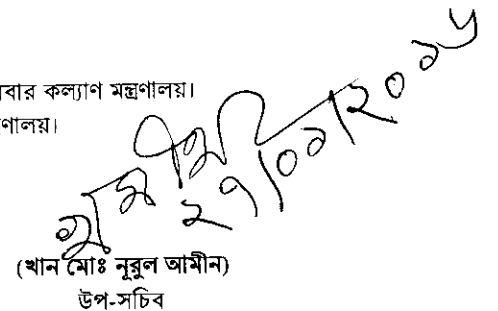 বার কল্যাণ মন্ত্রণালয়।
ণালয়।
২৭/০১/২০১৬
(খান মোঃ নূরুল আমীন)
উপ-সচিব